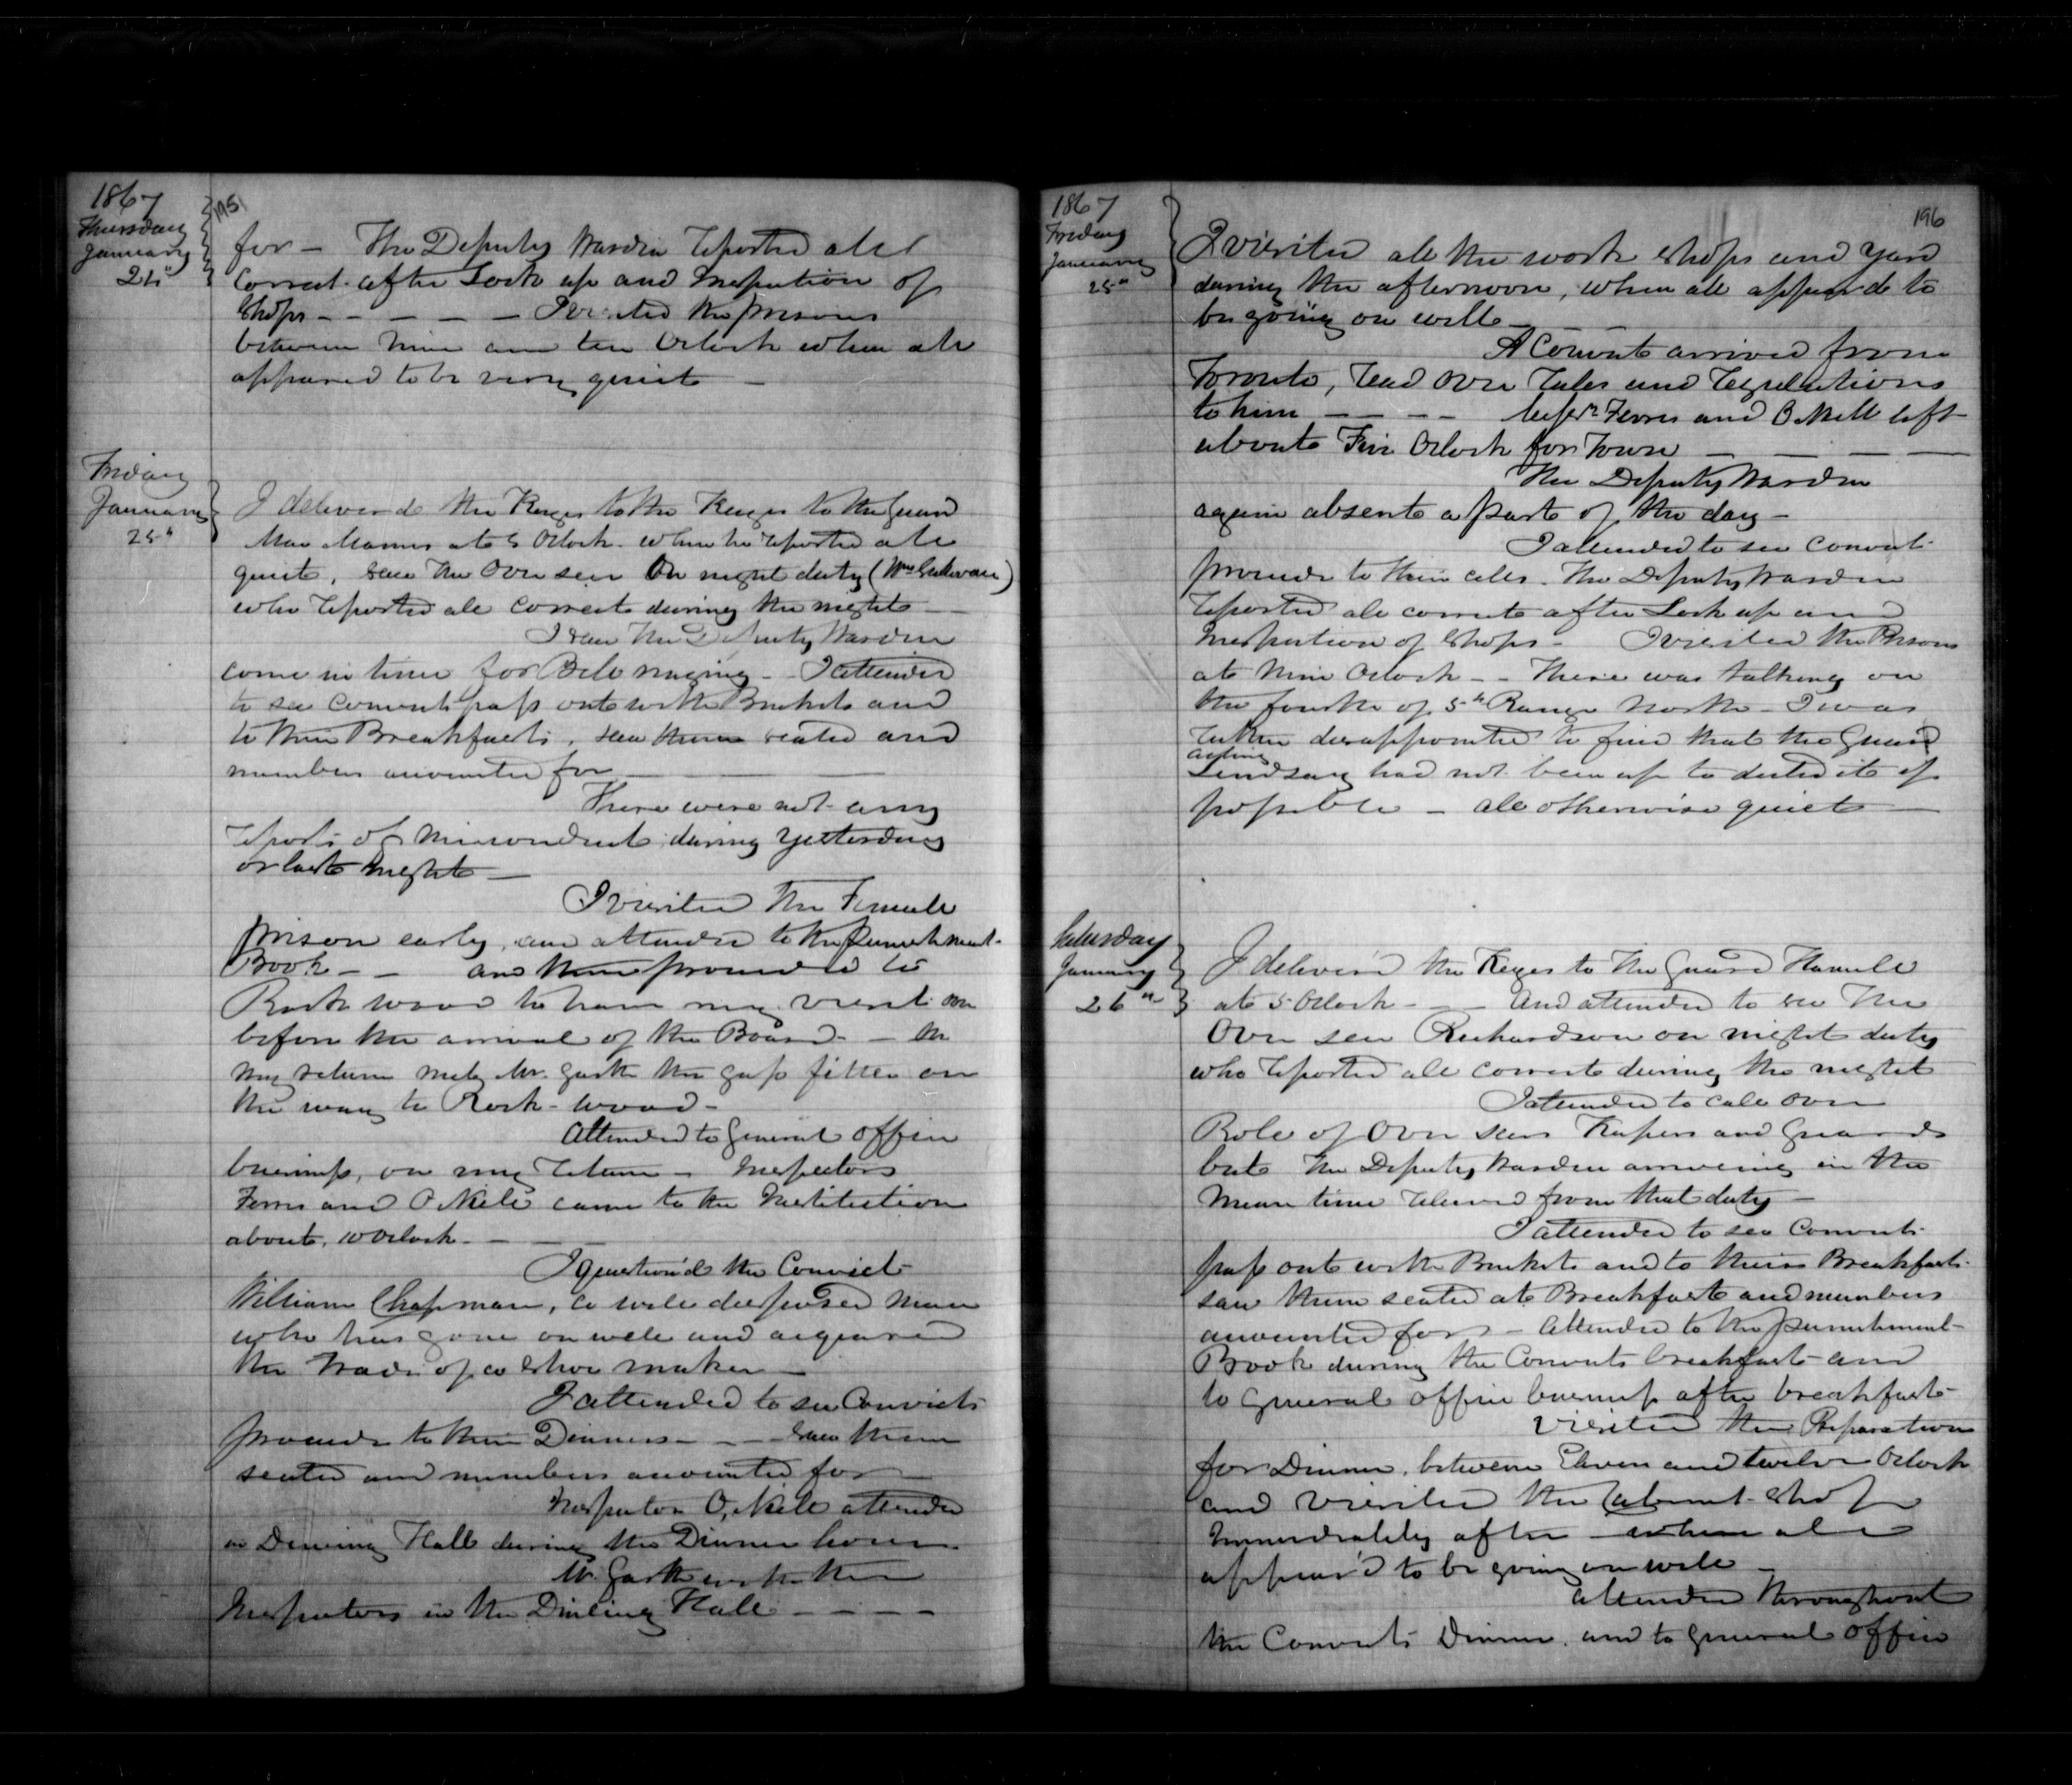 1867
Thursday
January
24"
195
for - The Deputy Warden reported all
Correct after Lock up and Inspection of
Shops - - - - - I visited the prisons
between Nine and ten Oclock when all
appeared to be very quiet -
Friday
January
25"
I deliver'd the Keyes to the Keyes to the Guard
Mac Manus at 5 Oclock. when he reported all
quiet, saw the Over seer On night duty (Wm Sullivan)
who reported all Correct during the night -
I saw the Deputy Warden
come in time for Bell ringing - I attended
to see Convicts pass out with Buckets and
to their Breakfasts, saw them seated and
numbers accounted for - -
There were not any
reports of misconduct during Yesterday
or last Night -
I visited the Female
prison early, and attended to the punishment
Book - - and then proceeded to
Rock wood to have my visit
before the arrival of the Board - - On
my return met Mr. Garth the gass fitter on
the way to Rock-wood -
Attended to General office
business, on my return - Inspectors
Ferres and O'Neill came to the Institution
about 10 Oclock - -
I question'd the Convict
William Chapman, a well disposed man
who has gone on well and acquired
the trade of a Shoe maker -
I attended to see Convicts
proceed to their Dinners - - - Saw them
seated and numbers accounted for -
Inspector O'Neill attended
in Dining Hall during the Dinner hour
Mr. Garth with the
Inspectors in the Dining Hall - - - -
1867
Friday
January
25"
196
I visited all the work shops and yard
during the afternoon, when all appear'd to
be going on well -
A Convict arrived from
Toronto, read over rules and regulations
to him - - - - Insprs Ferres and O'Neill left
about Five Oclock for Town - - - -
The Deputy Warden
again absent a part of the day -
I attended to see Convicts
proceed to their cells. The Deputy Warden
reported all correct after Lock up and
Inspection of Shops - I visited the Prisons
at Nine Oclock - - There was talking on
the fourth of 5th Range North - I was
rather disappointed to find that the Guard
acting
Lindsay had not been up to detect it if
possible - all otherwise quiet -
Saturday
January
26"
I deliver'd the Keyes to the Guard Hamill
at 5 Oclock - - And attended to see the
Over seer Richardson on night duty
who reported all Correct during the night
I attended to call over
Role of Over seers Keepers and Guards
but the Deputy Warden arriving in the
mean time relieved from that duty -
I attended to see Convicts
pass out with Buckets and to their Breakfasts
saw them seated at Breakfast and numbers
accounted for - Attended to the punishment
Book during the Convicts breakfast and
to General office business after breakfast
Visited the Preparation
for Dinner, between Eleven and twelve Oclock
and visited the Cabinet Shop
Immediately after when all
appear'd to be going on well -
attended throughout
the Convicts Dinner. and to general office